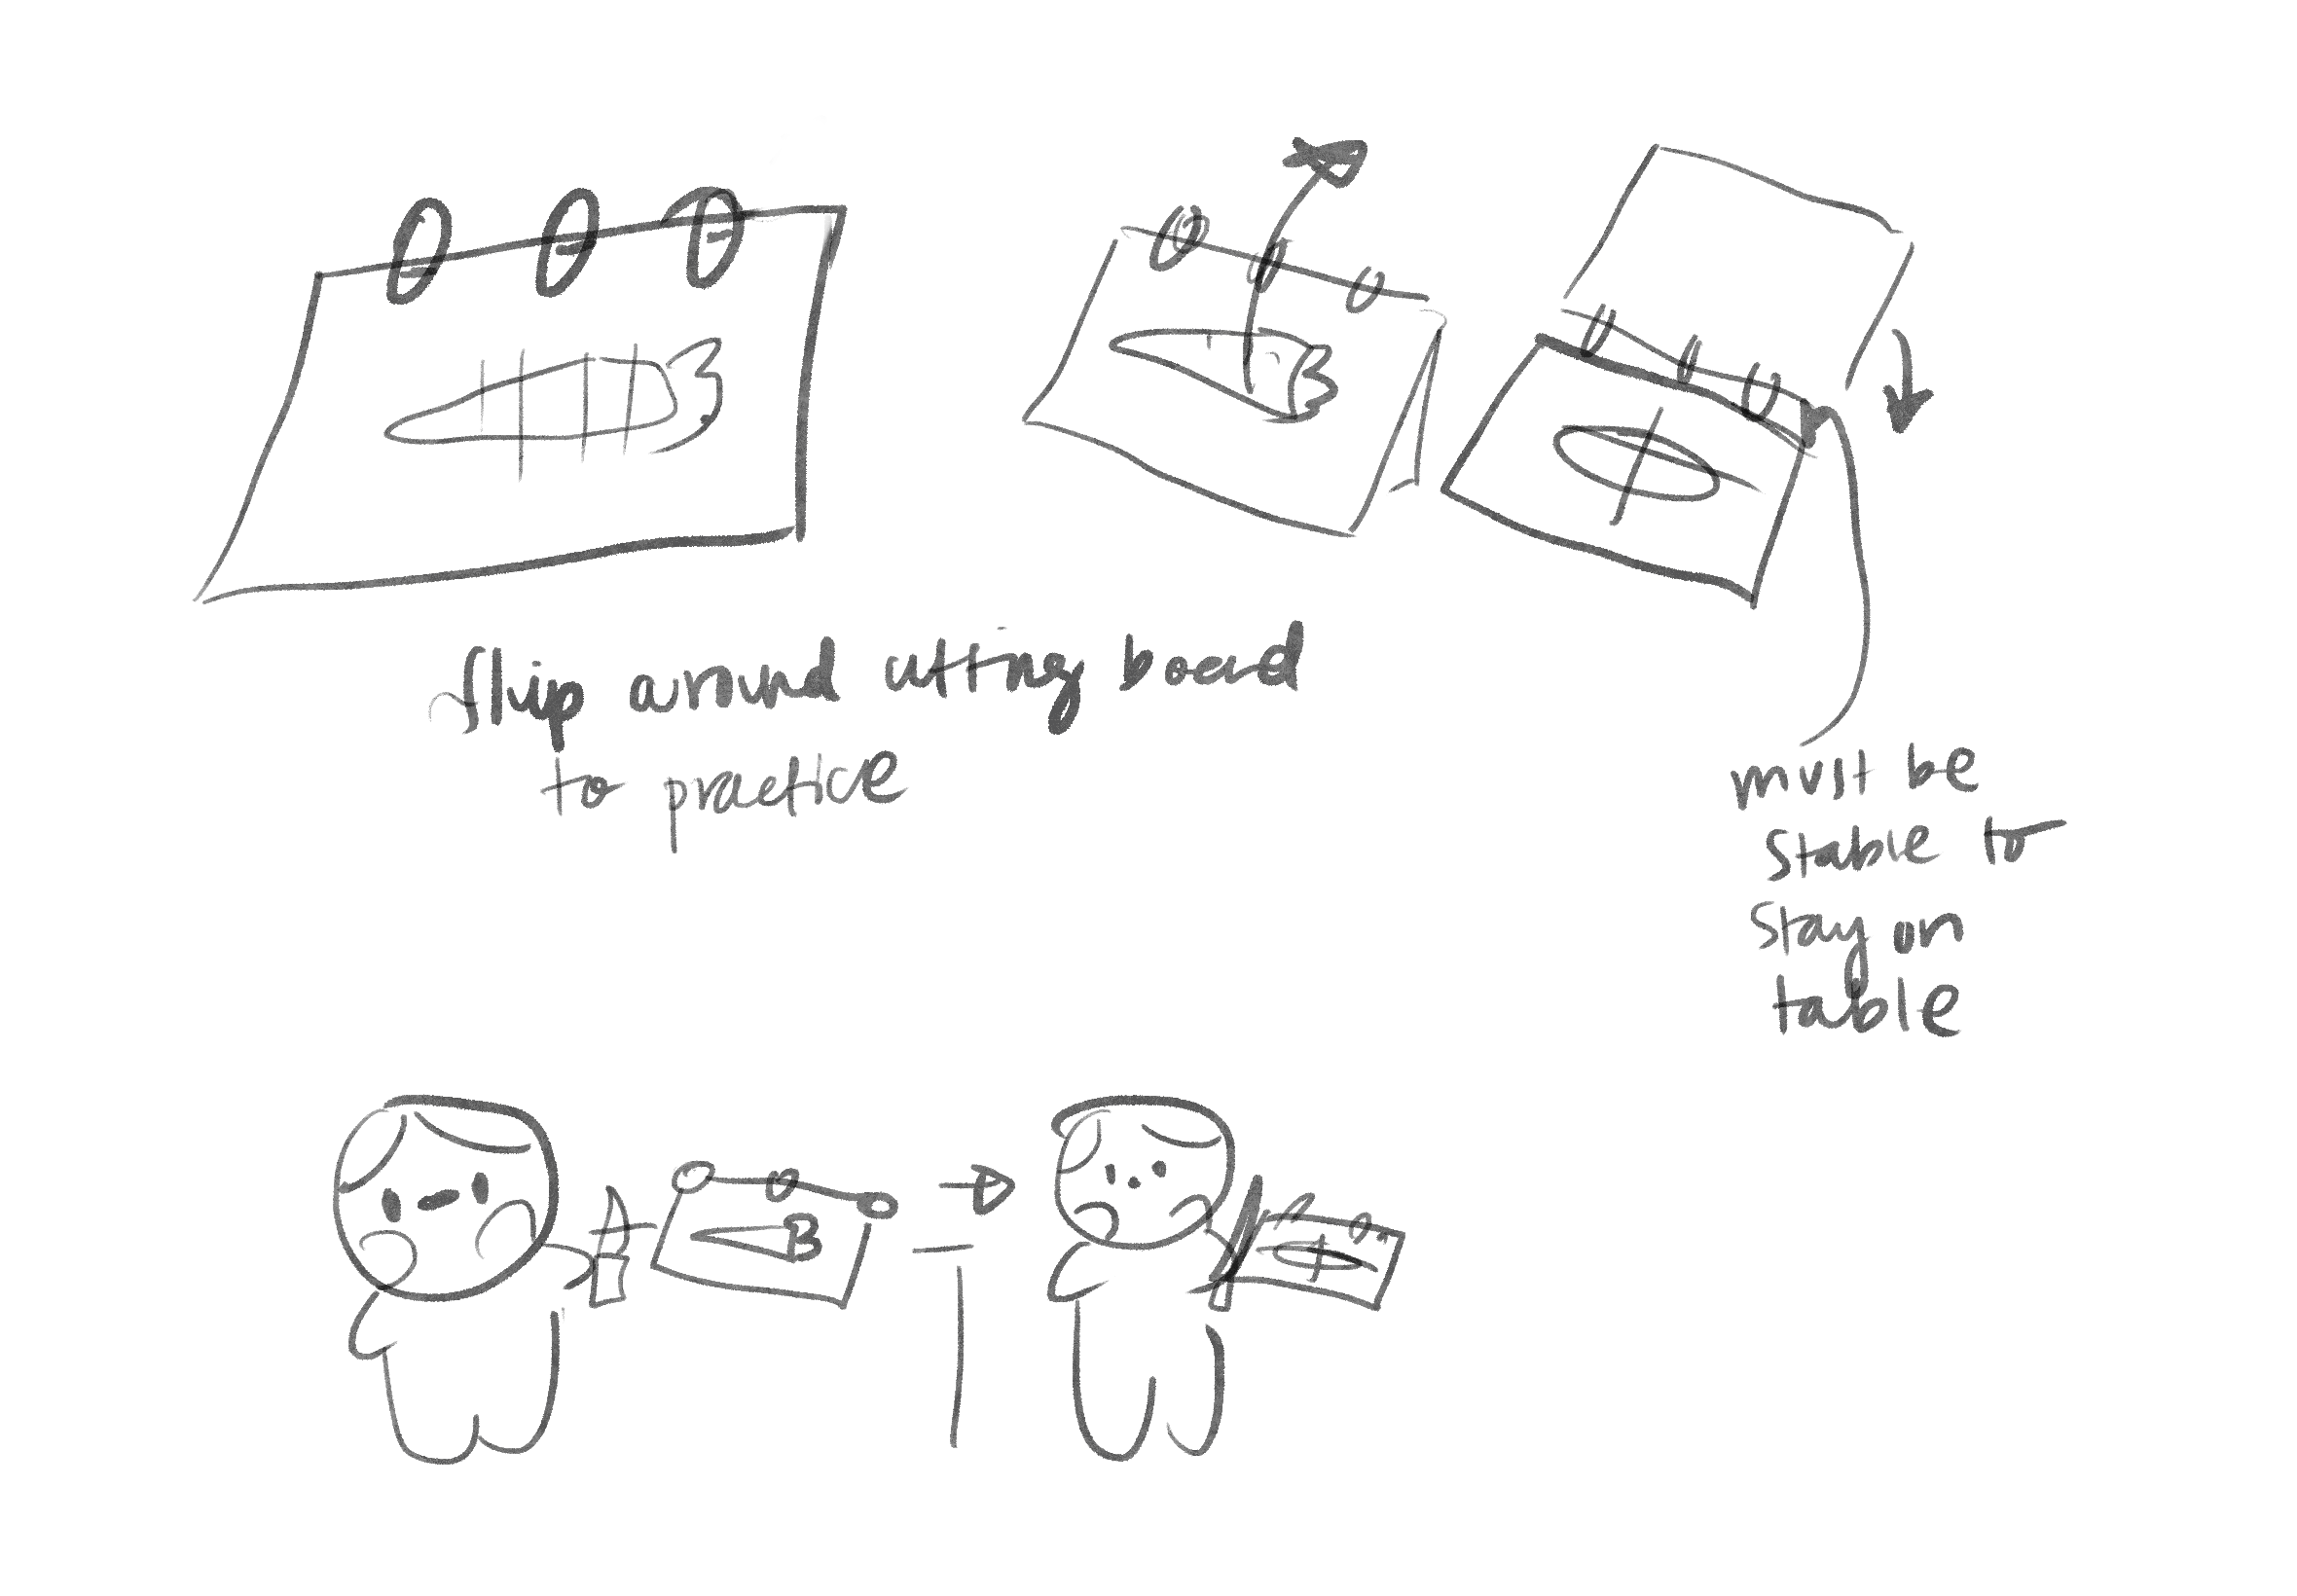 flip around cutting board
to practice
must be
stable to
stay on
table